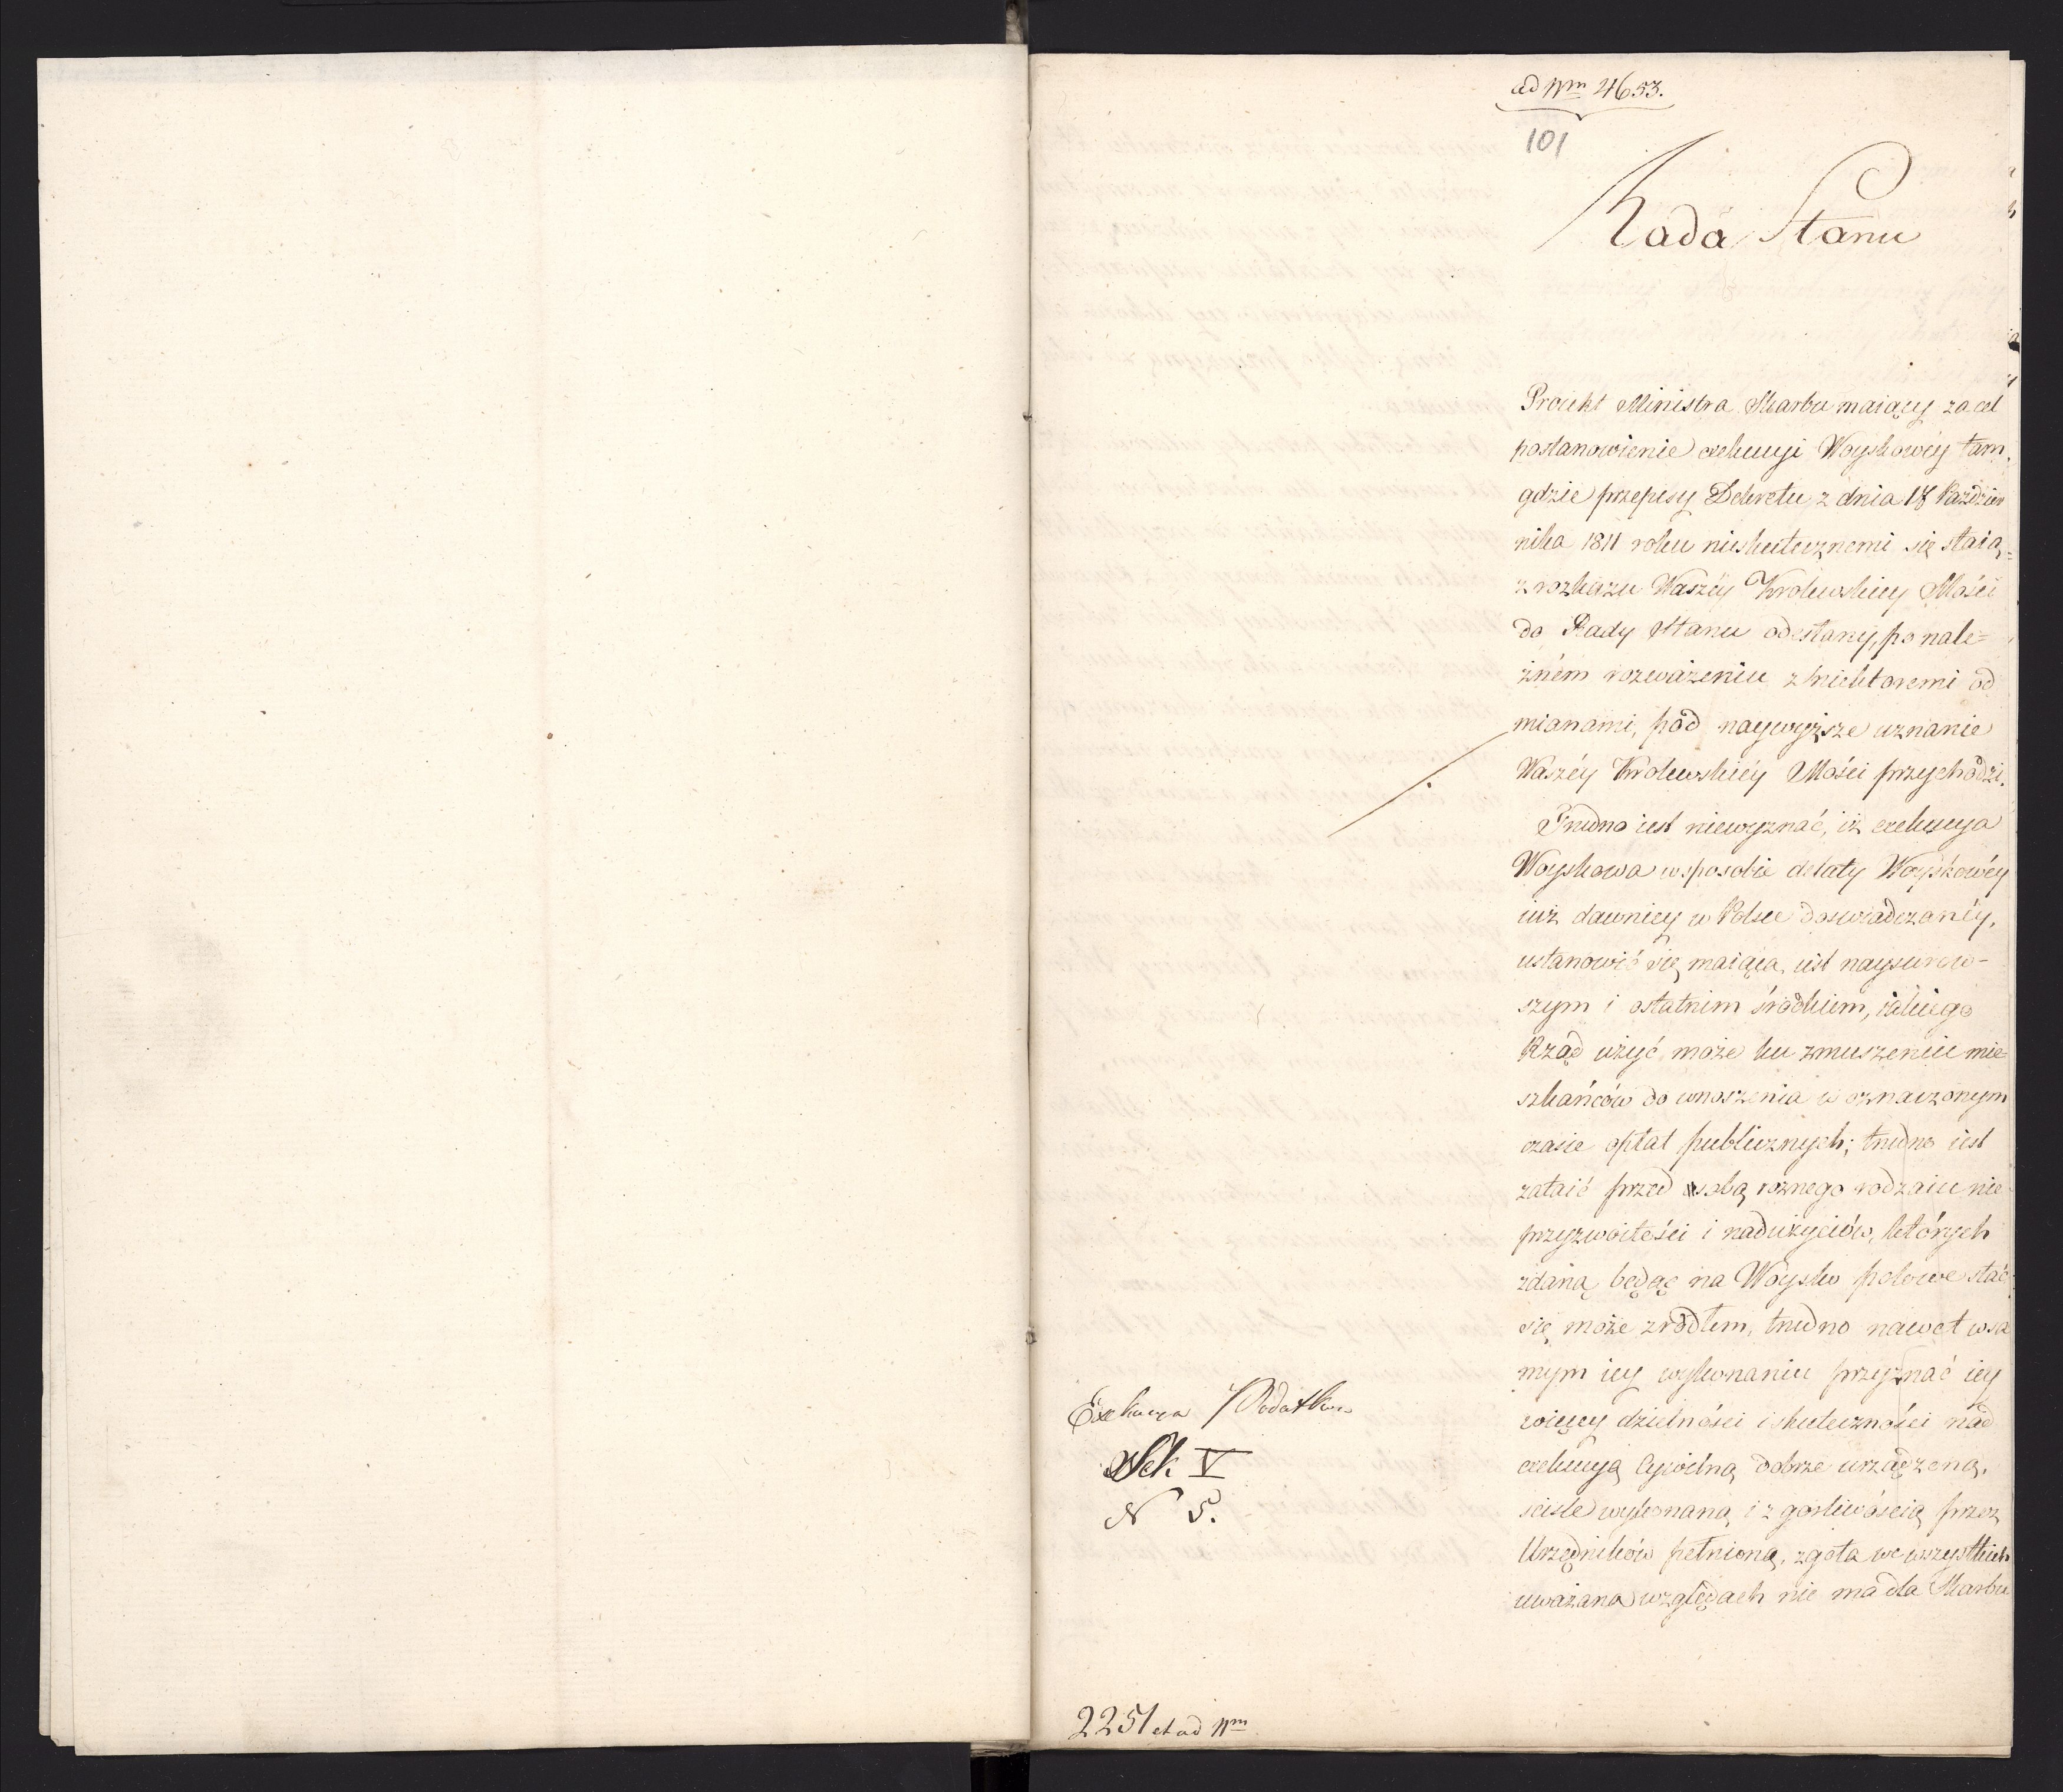 ad Nrm 4653.
101
Rada Stanu
Proiekt Ministra Skarbu maiący za cel
postanowienie exekucyi Woyskowéy tam,
gdzie przepisy Dekretu z dnia 18 Paździer
nika 1811 roku nieskutecznemi się staią,=
z rozkazu Waszéy Krolewskiey Mości
do Rady Stanu odesłany, po nale=
żném rozważeniu z niektoremi od
mianami, pod naywyższe uznanie
Waszéy Krolewskiéy Mości przychodzi.
Trudno iest niewyznać, iż exekucya
Woyskowa w sposobie delaty Woyskowéy
iuż dawniey w Polsce doswiadczanéy,
ustanowić się maiąca, iest naysurow-
szym i ostatnim środkiem, iakiego
Rząd użyć może ku zmuszeniu mie=
szkańców do wnoszenia w oznaczonym
czasie opłat publicznych; trudno iest
zataić przed sobą rożnego rodzaiu nie
przyzwoitości i nadużyciów, których
zdaną będąc na Woysko polowe stać
się może zrodłem, trudno nawet w sa
mym iey wykonaniu przyznać iey
więcey dzielności i skuteczności nad
exekucyą Cywilną dobrze urządzoną,
sciśle wykonaną i z gorliwością przez
Urzędników pełnioną, zgoła we wszystkich
uważana względach nie ma dla Skarbu
Exekucya Podatkow
Sek V
N 5.
2251 et ad Nrm